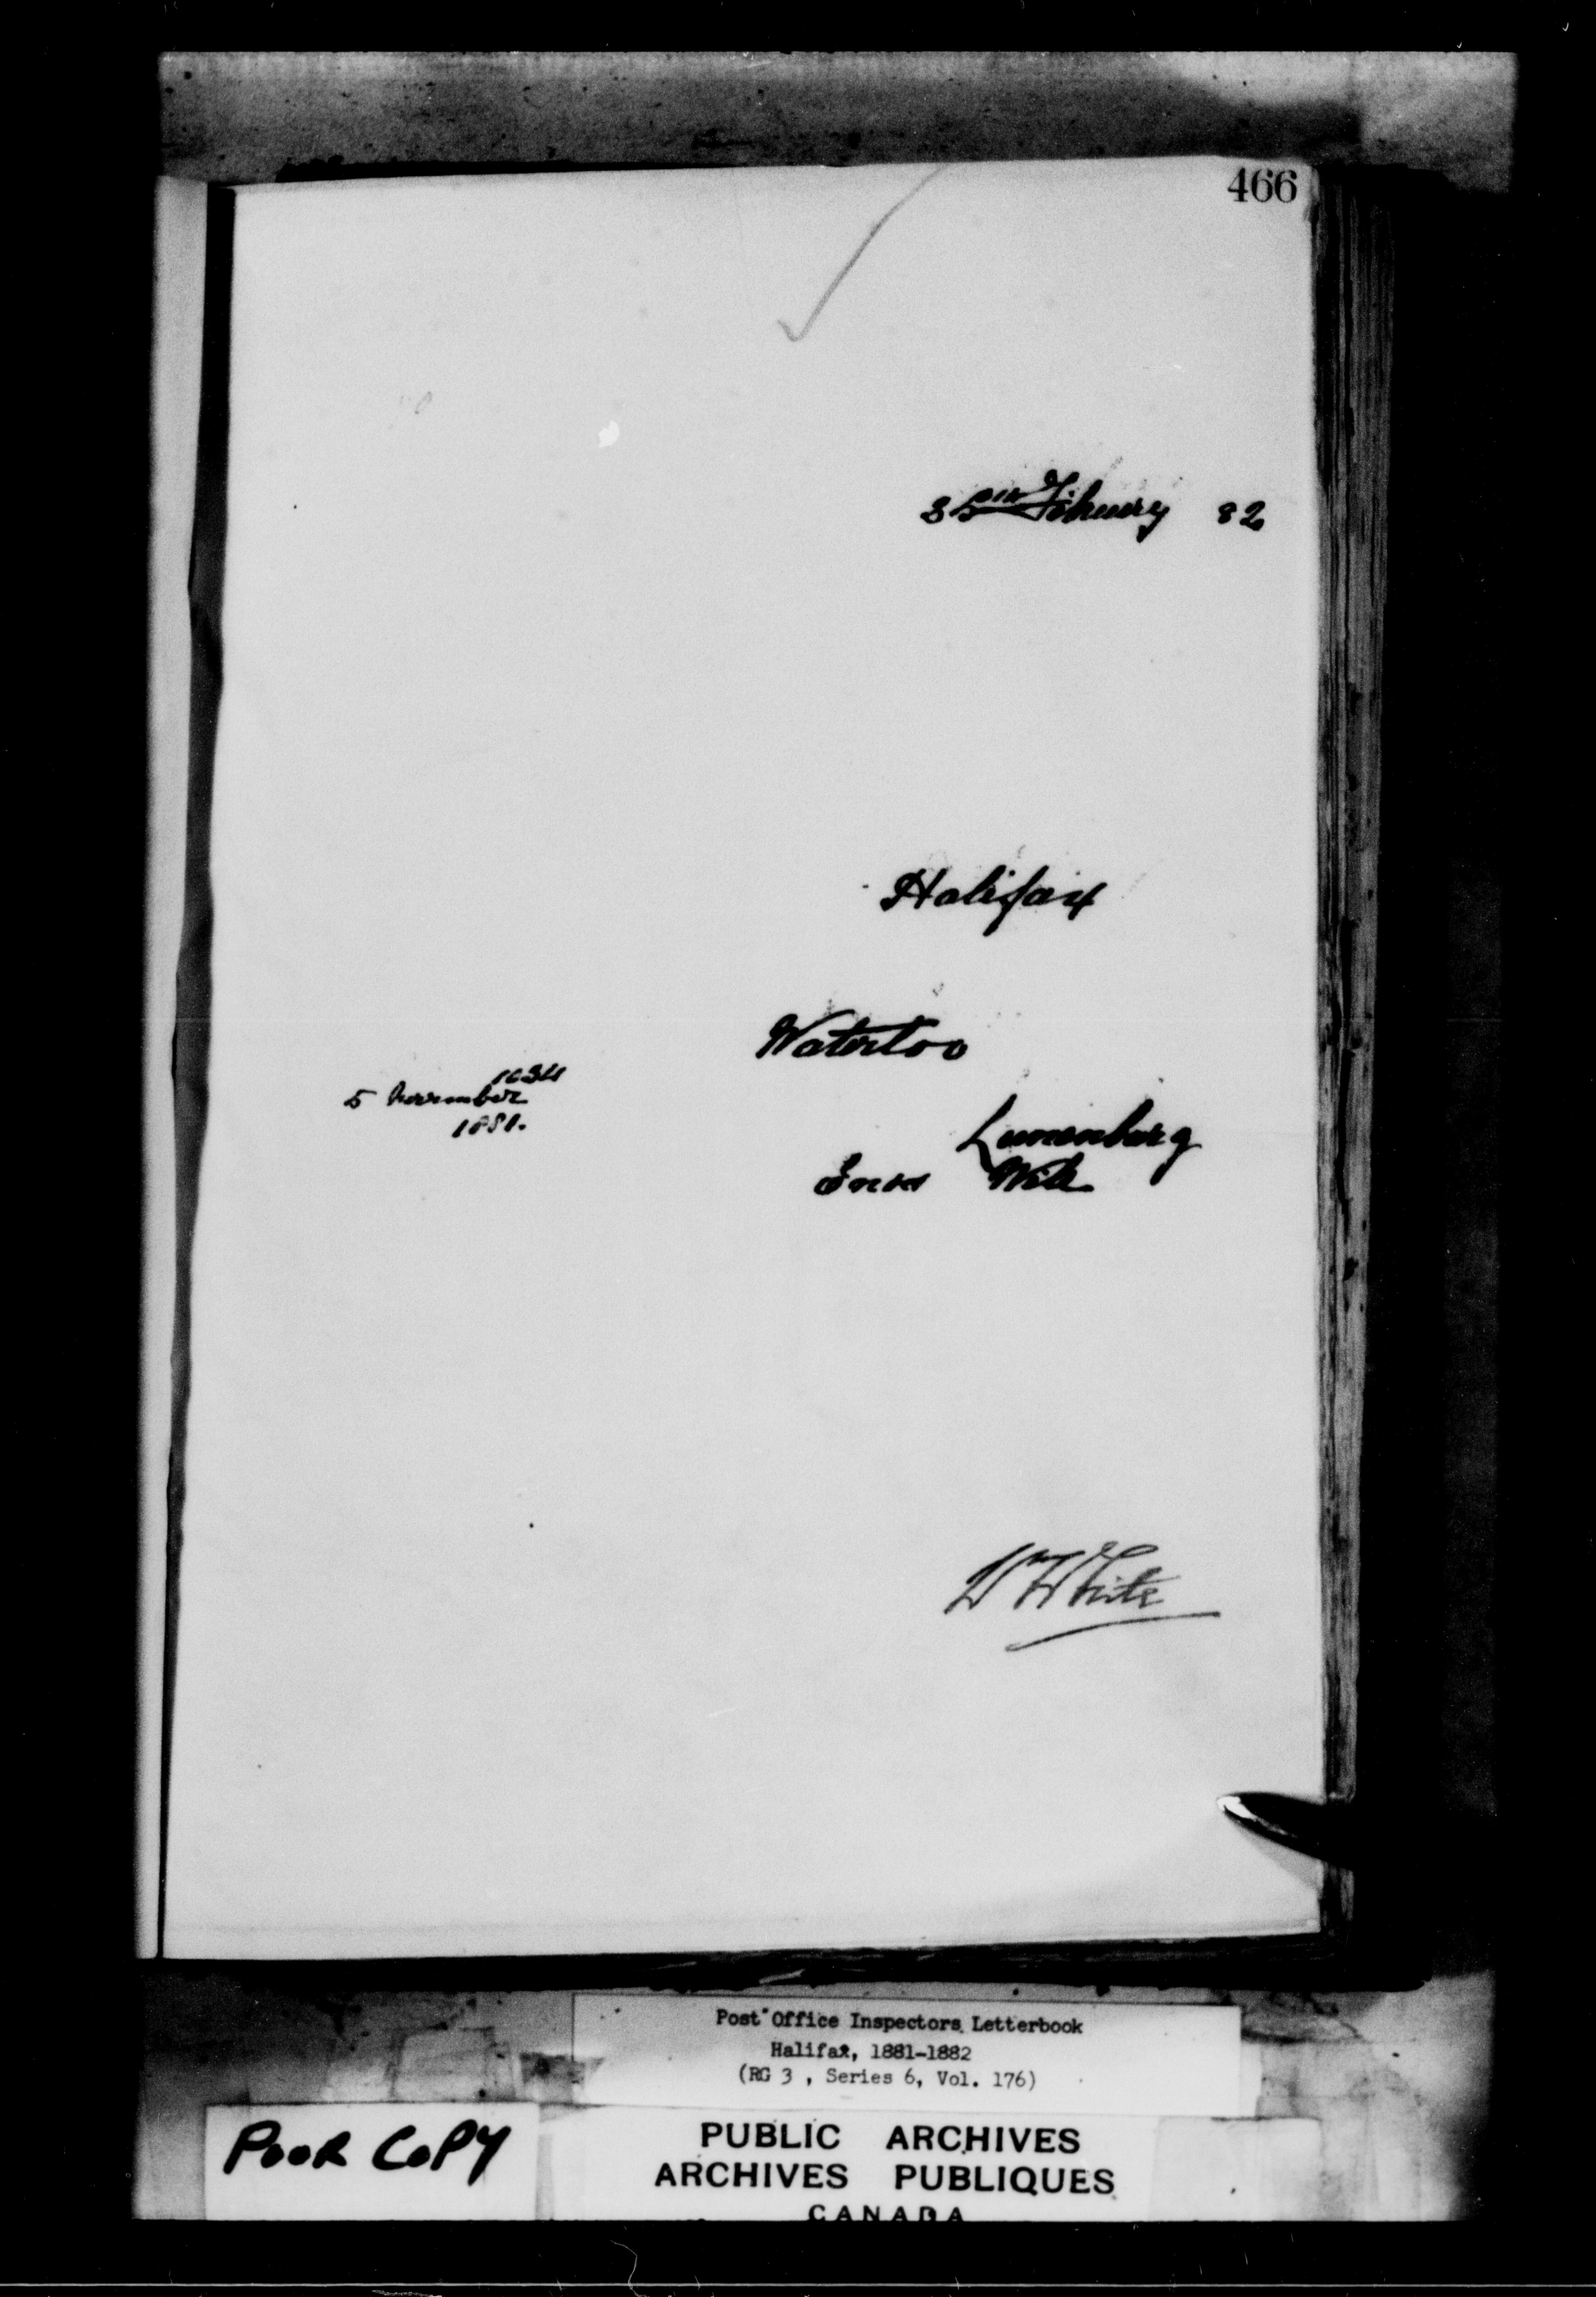 466
February 82
Halifax
Waterloo
1034
5 November
1881.
Lunenburg
Enos Wile
W White
Post Office Inspectors Letterbook
Halifax, 1881-1882
(RG 3 , Series 6, Vol. 176)
POOR COPY
PUBLIC ARCHIVES
ARCHIVES PUBLIQUES
CANADA